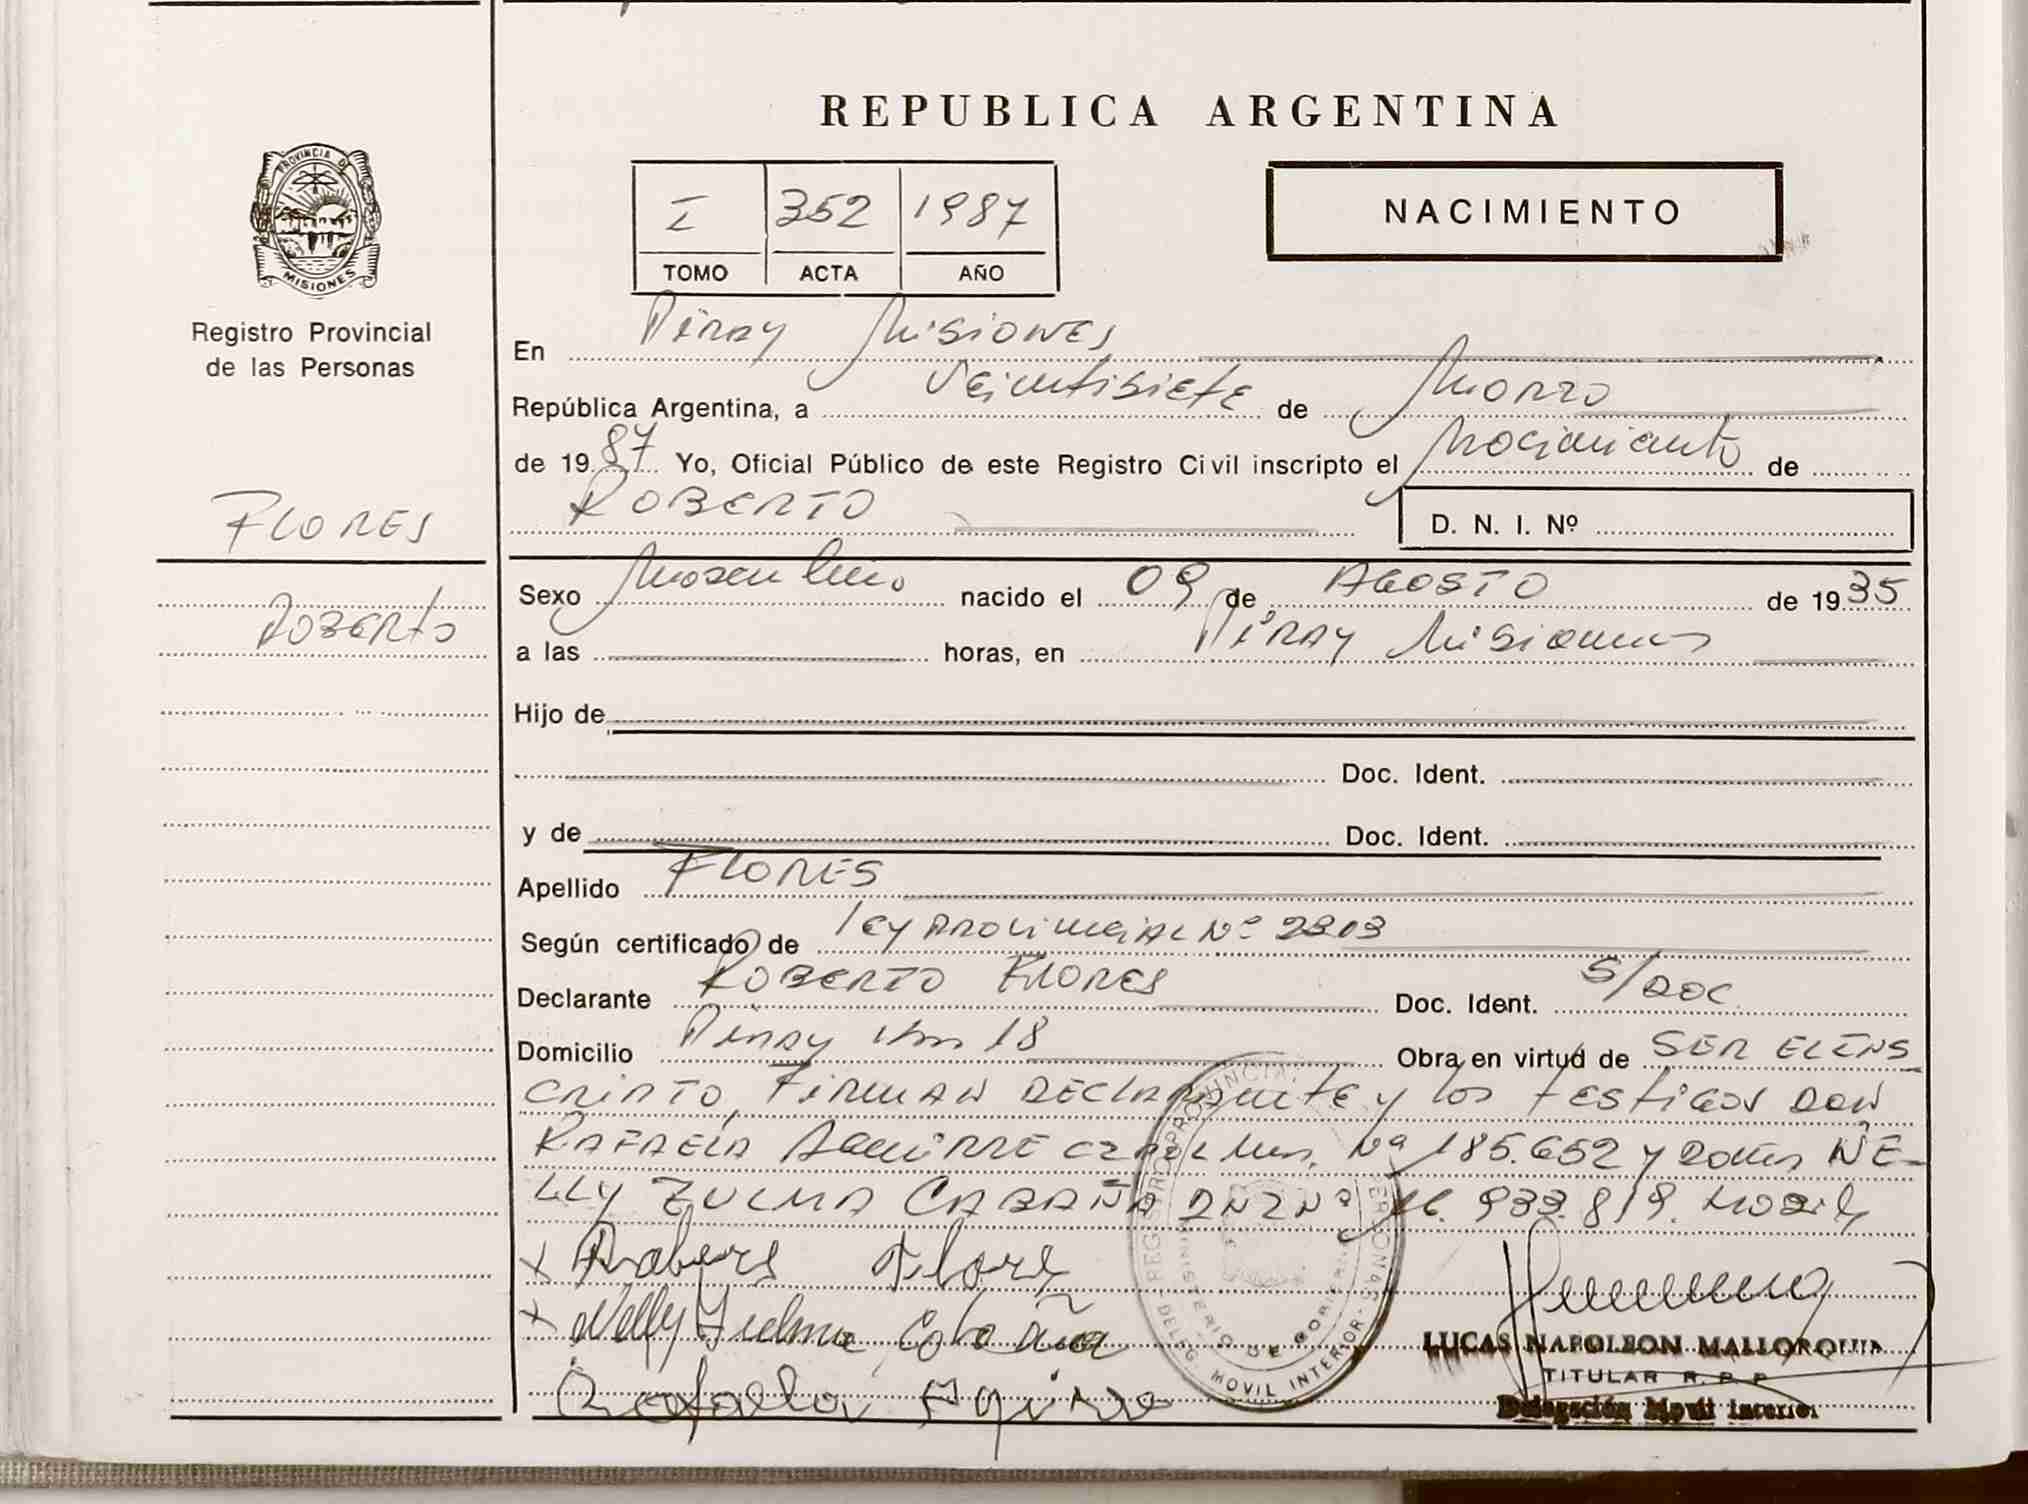 REPUBLICA ARGENTINA
PROVINCIA DE
MISIONES
Registro Provincial
de las Personas
I 352 1987
TOMO ACTA AÑO
NACIMIENTO
En Piray Misiones
República Argentina, a Veintisiete de Marzo
de 1987 Yo, Oficial Público de este Registro Civil inscripto el Nacimiento de
ROBERTO
D. N. I. Nº
FLORES
Roberto
Sexo Masculino nacido el 09 de AGOSTO de 1935
a las horas, en Piray Misiones
Hijo de
Doc. Ident.
y de Doc. Ident.
Apellido FLORES
Según certificado de ley Provincial Nº 2303
Declarante ROBERTO FLORES Doc. Ident. S/DOC.
Domicilio Piray Km 18 Obra en virtud de SER EL INS
CRIPTO, FIRMAN DECLARANTE y los testigos DON
RAFAELA AGUIRRE Nº 185.652 y Doña NE-
LLY ZULMA CABAÑA DNI Nº 933.819.
x Flores
x Nelly Zulma Cabaña
LUCAS NAPOLEON MALLORQUIN
TITULAR R. P. P.
Delegación Movil Interior
REGISTRO PROVINCIAL PERSONAS
MINISTERIO DE GOBIERNO
DELEG. MOVIL INTERIOR